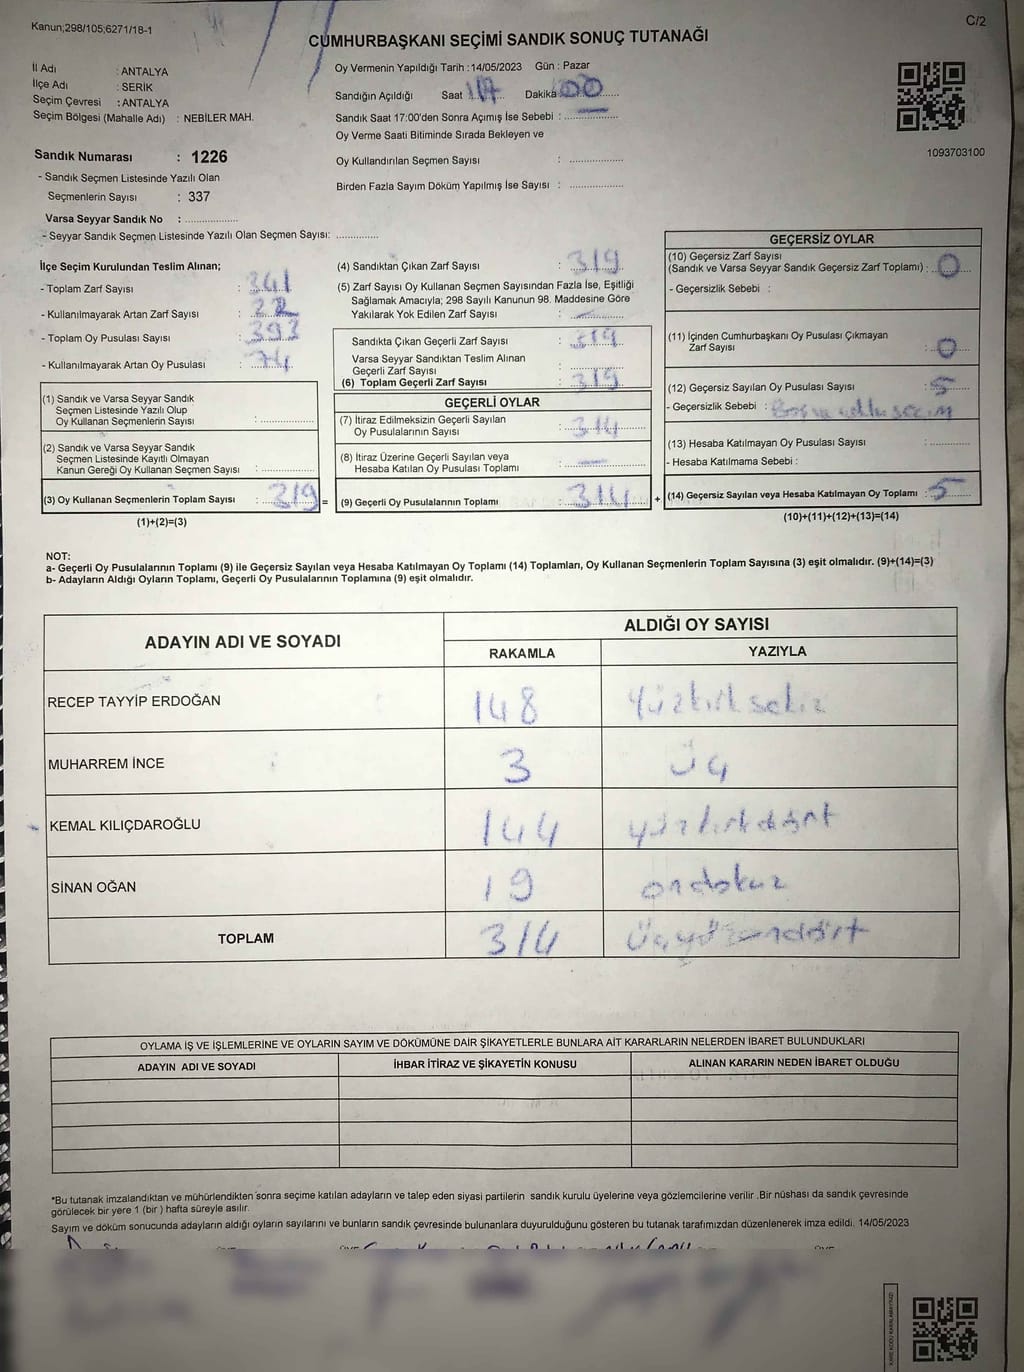 Kanun;298/105;6271/18-1
C/2
CUMHURBAŞKANI SEÇİMİ SANDIK SONUÇ TUTANAĞI
İl Adı : ANTALYA
İlçe Adı : SERİK
Seçim Çevresi : ANTALYA
Seçim Bölgesi (Mahalle Adı) : NEBİLER MAH.
Oy Vermenin Yapıldığı Tarih :14/05/2023 Gün : Pazar
Sandığın Açıldığı Saat 17 Dakika 00
Sandık Saat 17:00'den Sonra Açımış İse Sebebi :
Oy Verme Saati Bitiminde Sırada Bekleyen ve
Oy Kullandırılan Seçmen Sayısı :
Birden Fazla Sayım Döküm Yapılmış İse Sayısı :
1093703100
Sandık Numarası : 1226
- Sandık Seçmen Listesinde Yazılı Olan
Seçmenlerin Sayısı : 337
Varsa Seyyar Sandık No :
- Seyyar Sandık Seçmen Listesinde Yazılı Olan Seçmen Sayısı:
İlçe Seçim Kurulundan Teslim Alınan;
- Toplam Zarf Sayısı : 341
- Kullanılmayarak Artan Zarf Sayısı : 22
- Toplam Oy Pusulası Sayısı : 393
- Kullanılmayarak Artan Oy Pusulası : 74
(1) Sandık ve Varsa Seyyar Sandık
Seçmen Listesinde Yazılı Olup
Oy Kullanan Seçmenlerin Sayısı :
(2) Sandık ve Varsa Seyyar Sandık
Seçmen Listesinde Kayıtlı Olmayan
Kanun Gereği Oy Kullanan Seçmen Sayısı :
(3) Oy Kullanan Seçmenlerin Toplam Sayısı : 319 =
(1)+(2)=(3)
(4) Sandıktan Çıkan Zarf Sayısı : 319
(5) Zarf Sayısı Oy Kullanan Seçmen Sayısından Fazla İse, Eşitliği
Sağlamak Amacıyla; 298 Sayılı Kanunun 98. Maddesine Göre
Yakılarak Yok Edilen Zarf Sayısı : —
Sandıkta Çıkan Geçerli Zarf Sayısı : 319
Varsa Seyyar Sandıktan Teslim Alınan
Geçerli Zarf Sayısı :
(6) Toplam Geçerli Zarf Sayısı : 319
GEÇERLİ OYLAR
(7) İtiraz Edilmeksizin Geçerli Sayılan
Oy Pusulalarının Sayısı : 314
(8) İtiraz Üzerine Geçerli Sayılan veya
Hesaba Katılan Oy Pusulası Toplamı : —
(9) Geçerli Oy Pusulalarının Toplamı : 314 +
GEÇERSİZ OYLAR
(10) Geçersiz Zarf Sayısı
(Sandık ve Varsa Seyyar Sandık Geçersiz Zarf Toplamı) : 0
- Geçersizlik Sebebi :
(11) İçinden Cumhurbaşkanı Oy Pusulası Çıkmayan
Zarf Sayısı : 0
(12) Geçersiz Sayılan Oy Pusulası Sayısı : 5
- Geçersizlik Sebebi :
(13) Hesaba Katılmayan Oy Pusulası Sayısı :
- Hesaba Katılmama Sebebi :
(14) Geçersiz Sayılan veya Hesaba Katılmayan Oy Toplamı : 5
(10)+(11)+(12)+(13)=(14)
NOT:
a- Geçerli Oy Pusulalarının Toplamı (9) ile Geçersiz Sayılan veya Hesaba Katılmayan Oy Toplamı (14) Toplamları, Oy Kullanan Seçmenlerin Toplam Sayısına (3) eşit olmalıdır. (9)+(14)=(3)
b- Adayların Aldığı Oyların Toplamı, Geçerli Oy Pusulalarının Toplamına (9) eşit olmalıdır.
ADAYIN ADI VE SOYADI
ALDIĞI OY SAYISI
RAKAMLA YAZIYLA
RECEP TAYYİP ERDOĞAN 148 yüzkırksekiz
MUHARREM İNCE 3 üç
KEMAL KILIÇDAROĞLU 144 yüzkırkdört
SİNAN OĞAN 19 ondokuz
TOPLAM 314 üçyüzondört
OYLAMA İŞ VE İŞLEMLERİNE VE OYLARIN SAYIM VE DÖKÜMÜNE DAİR ŞİKAYETLERLE BUNLARA AİT KARARLARIN NELERDEN İBARET BULUNDUKLARI
ADAYIN ADI VE SOYADI İHBAR İTİRAZ VE ŞİKAYETİN KONUSU ALINAN KARARIN NEDEN İBARET OLDUĞU
*Bu tutanak imzalandıktan ve mühürlendikten sonra seçime katılan adayların ve talep eden siyasi partilerin sandık kurulu üyelerine veya gözlemcilerine verilir .Bir nüshası da sandık çevresinde
görülecek bir yere 1 (bir ) hafta süreyle asılır.
Sayım ve döküm sonucunda adayların aldığı oyların sayılarını ve bunların sandık çevresinde bulunanlara duyurulduğunu gösteren bu tutanak tarafımızdan düzenlenerek imza edildi. 14/05/2023